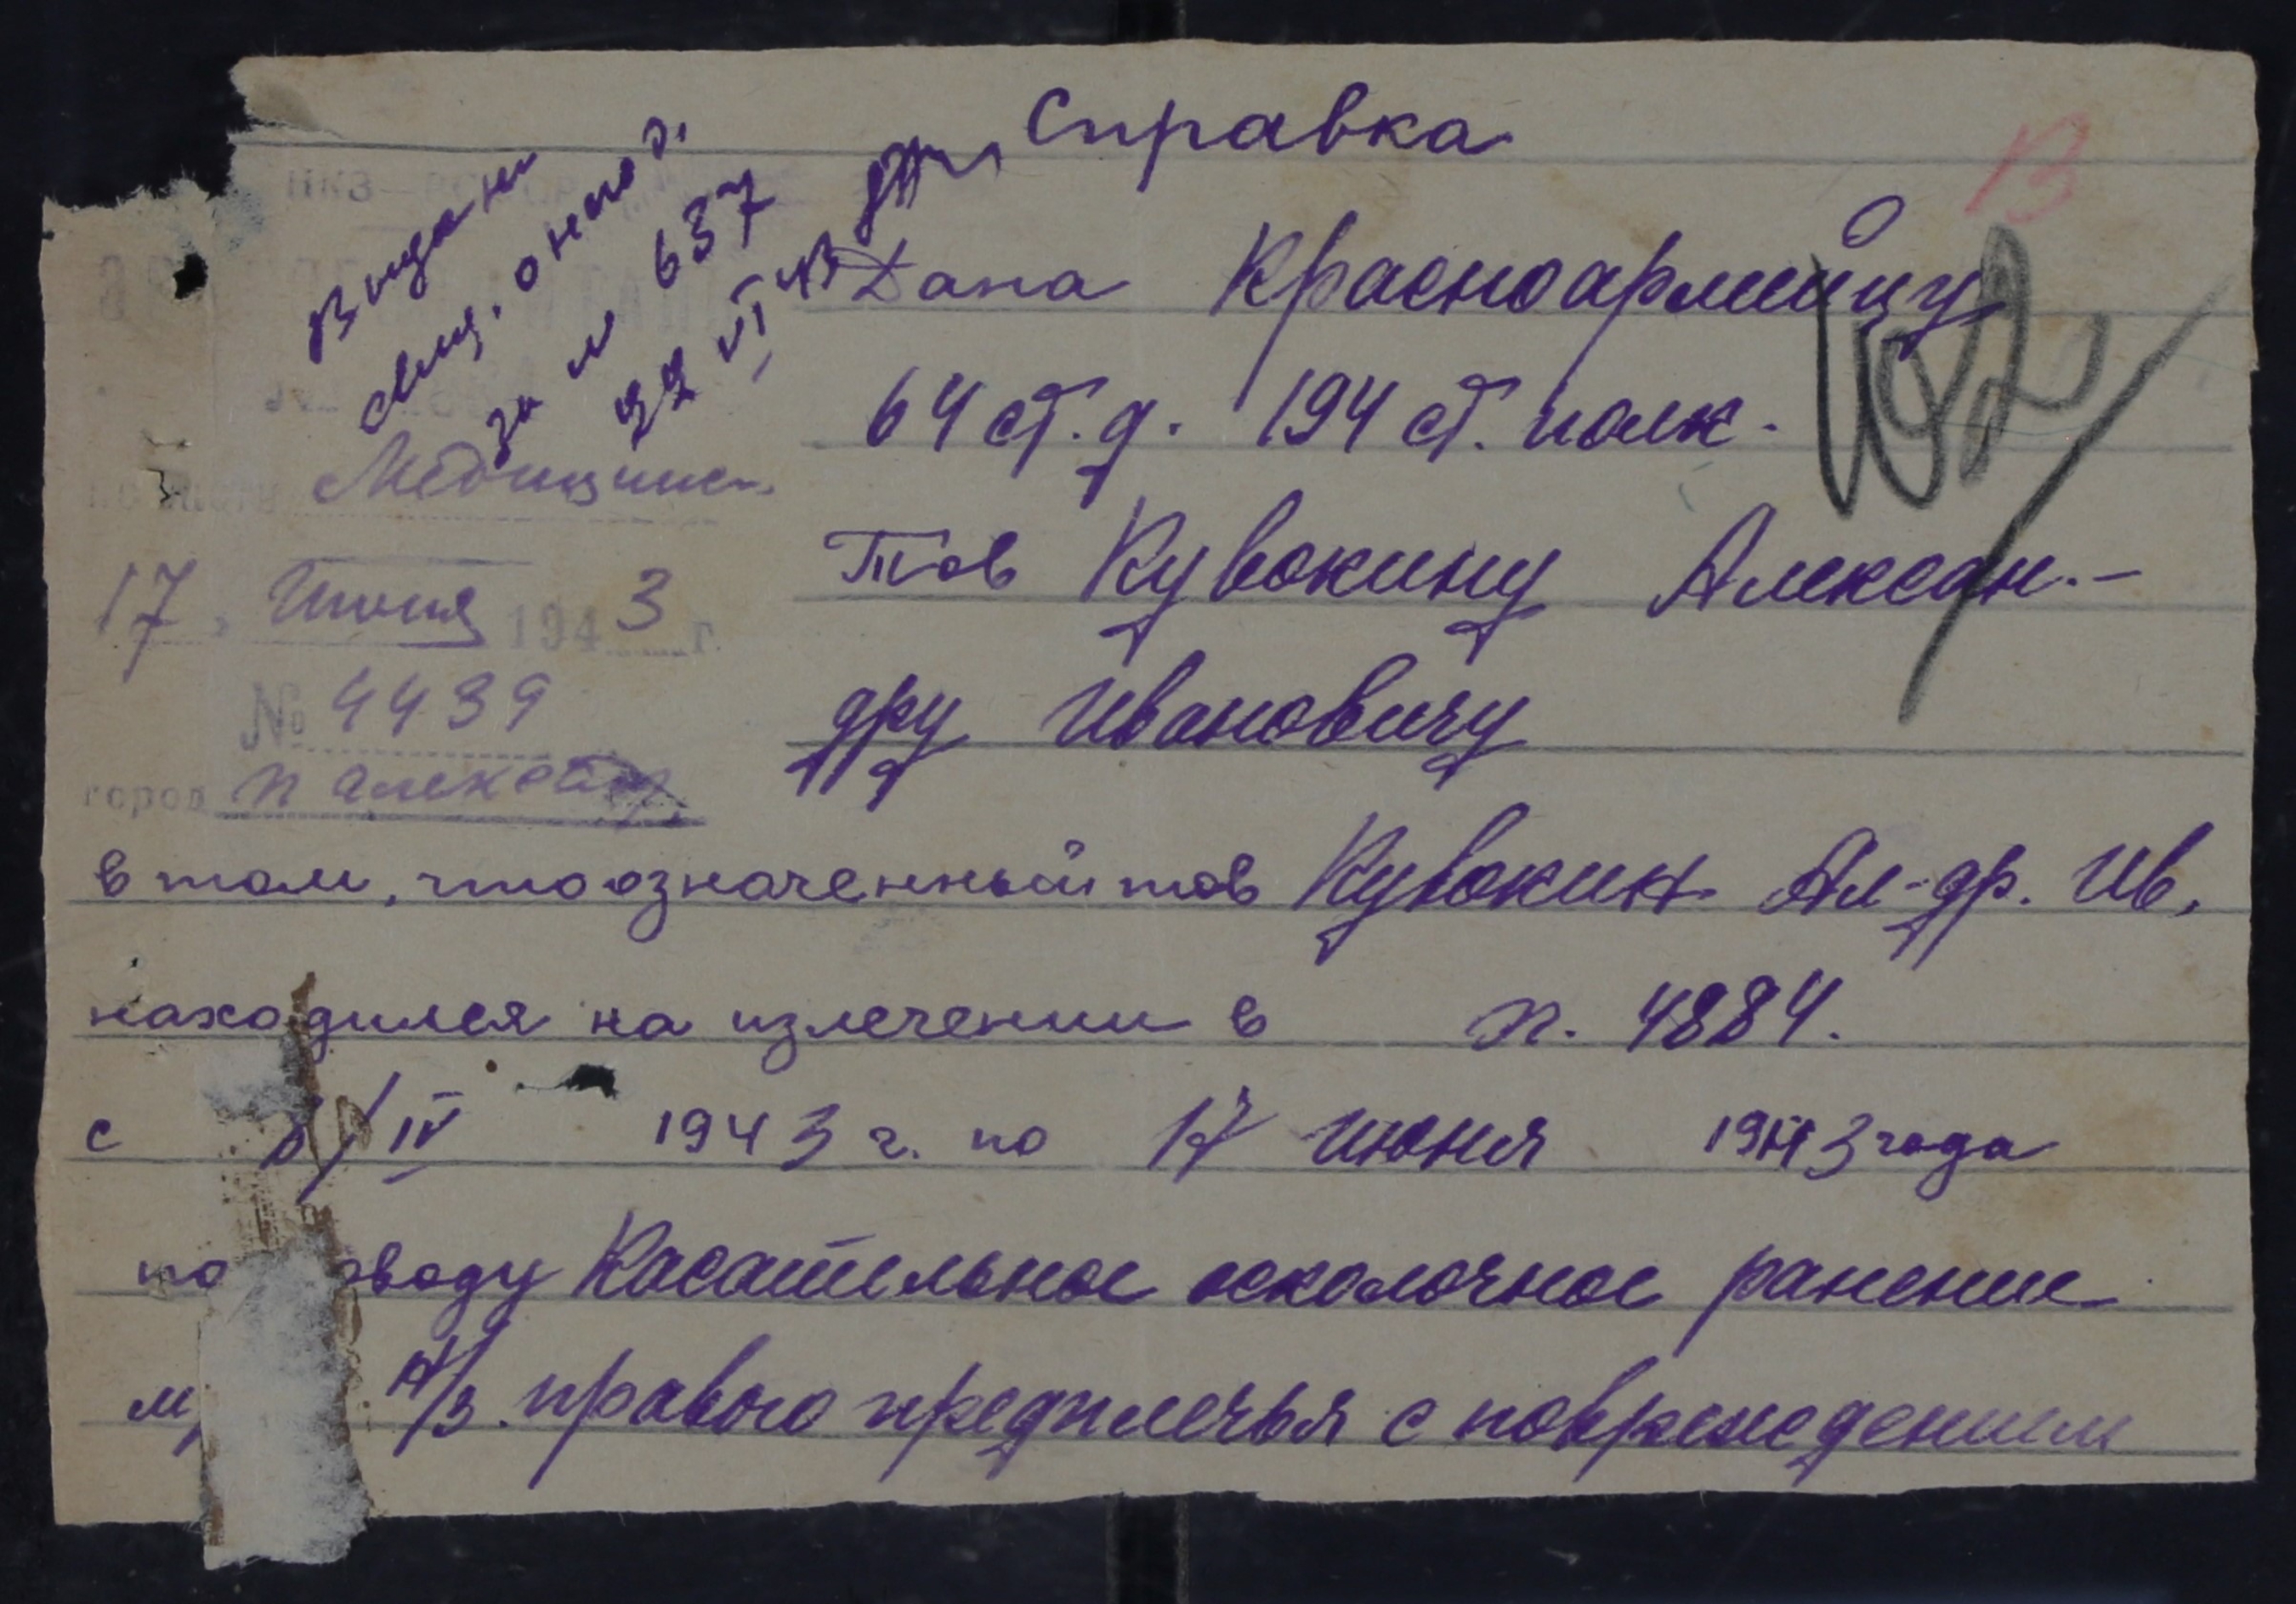 Справка
Выдано
свид. о него д.
за № 637
22 VI 43
Дана Красноармейцу
64 ст. д. 194 ст. полк.
Медицинск.
17 Июня 1943 г.
№ 4439
город п Алексот
Тов Кувокину Алексан-
дру Ивановичу
в том, что означенный тов Кувокин Ал-др. Ив.
находился на излечении в п. 4884.
с IV 1943 г. по 17 июня 1943 года
по поводу Касательное осколочное ранение
н/3. правого предплечья с повреждением
В
102